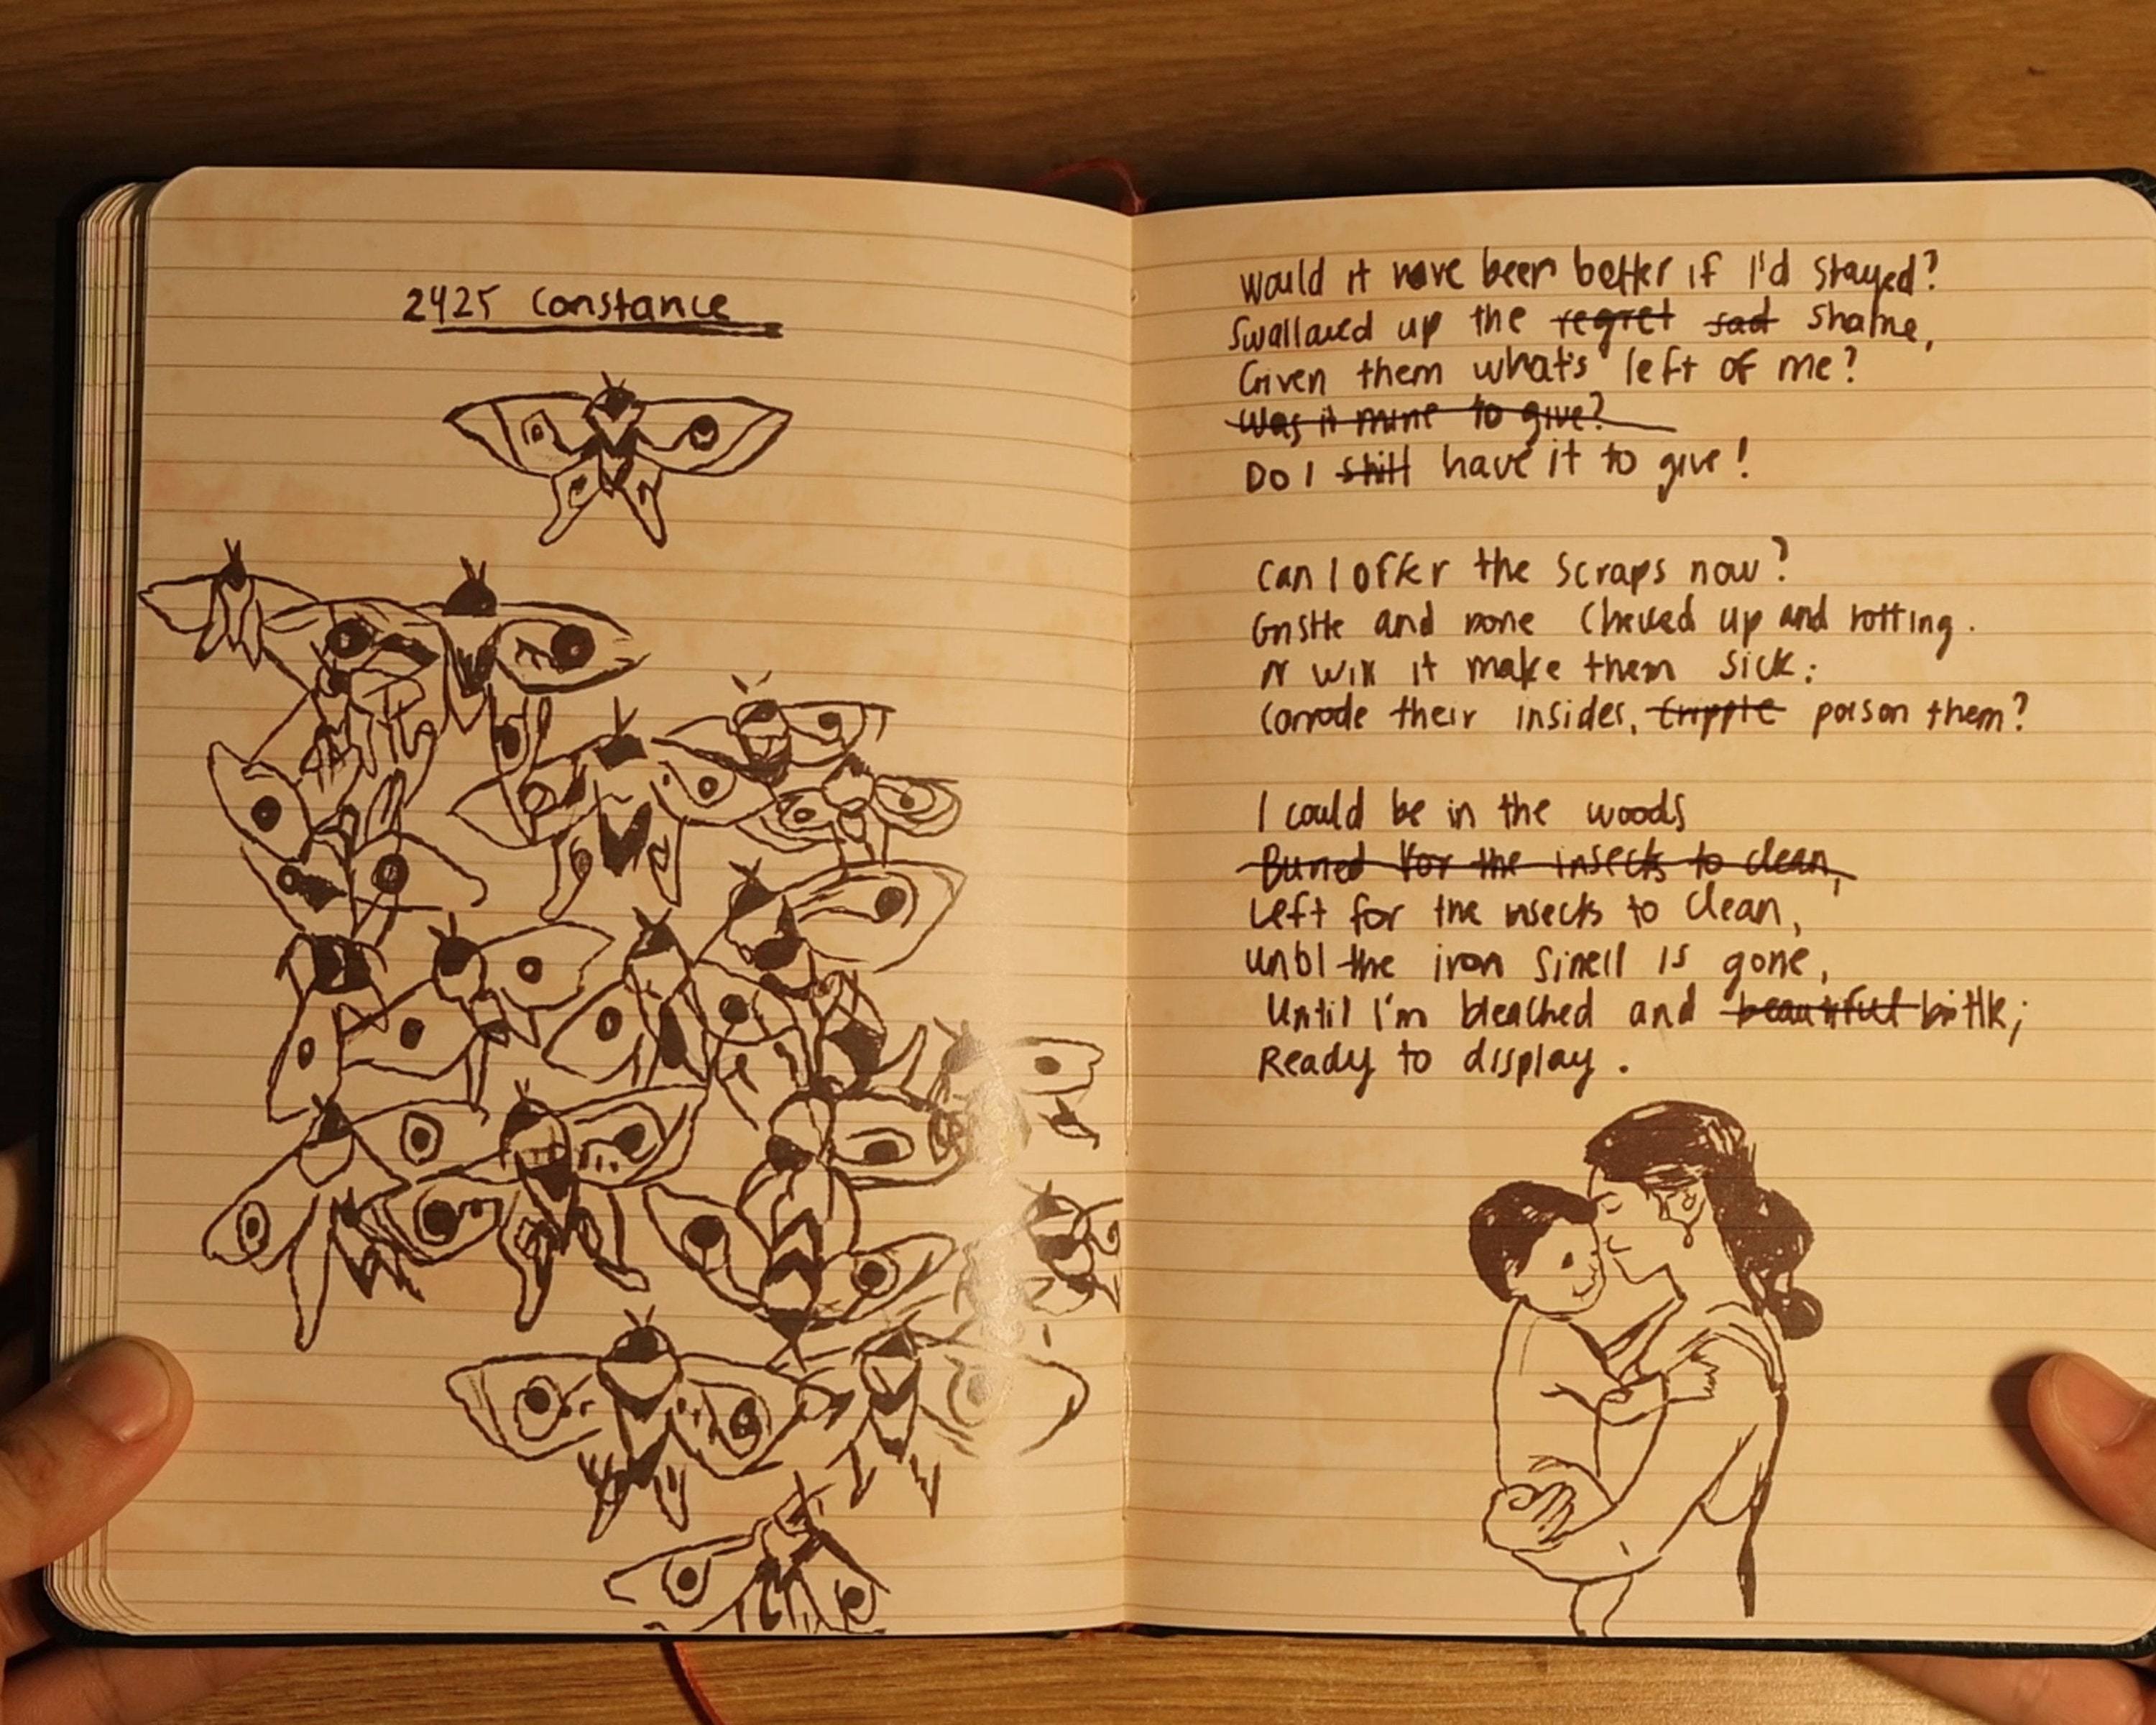 2425 Constance
Would it have been better if I'd stayed?
Swallowed up the regret sad shame,
Given them what's left of me?
Was it mine to give?
Do I still have it to give!
Can I offer the scraps now?
Gristle and bone Chewed up and rotting.
Or will it make them sick:
Corrode their insides, cripple poison them?
I could be in the woods
Buried for the insects to clean,
Left for the insects to clean,
Until the iron smell is gone,
Until I'm bleached and beautiful brittle;
Ready to display.